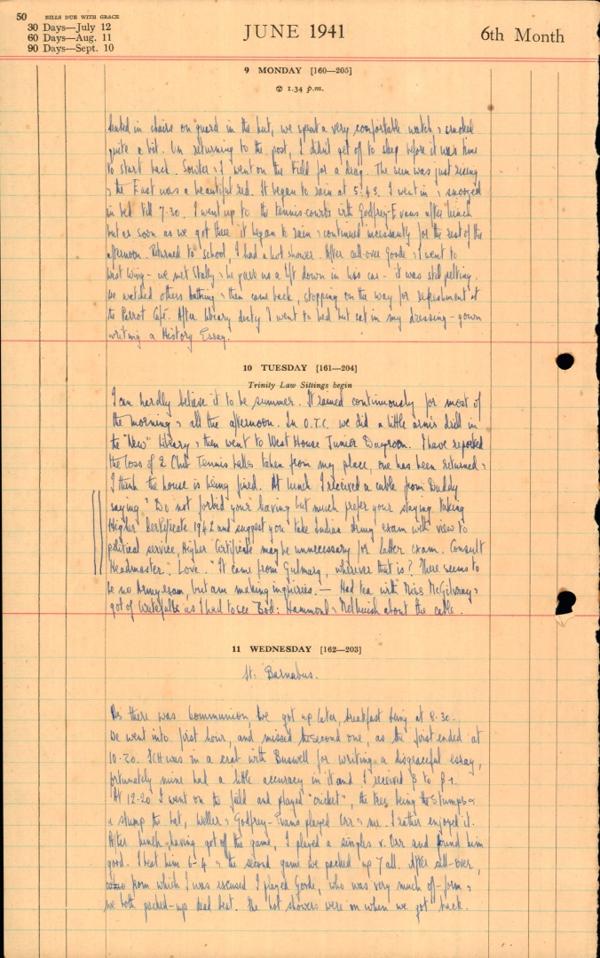 50 BILLS DUE WITH GRACE
30 Days—July 12
60 Days—Aug. 11
90 Days—Sept. 10
JUNE 1941
6th Month
9 MONDAY [160—205]
1.34 p.m.
seated in chairs on guard in the hut, we spent a very comfortable watch & smoked
quite a bit. On returning to the post, I didn't get off to sleep before it was time
to start back. & I went on the field for a drag. The sun was just rising
& the East was a beautiful red. It began to rain at 5.45. I went in & snoozed
in bed till 7.30. I went up to the tennis-courts with Godfrey-Evans after lunch
but as soon as we got there it began to rain & continued incessantly for the rest of the
afternoon. Returned to school, I had a hot shower. After call-over Goode & I went to
West Wing - we met Staley & he gave us a lift down in his car - it was still pelting.
We watched others bathing & then came back, stopping on the way for refreshment at
the Parrot Café. After library duty I went to bed but sat in my dressing-gown
writing a History Essay.
10 TUESDAY [161—204]
Trinity Law Sittings begin
I can hardly believe it to be summer. It rained continuously for most of
the morning & all the afternoon. In O.T.C. we did a little arms drill in
the "New" Library & then went to West House Junior Dayroom. I have reported
the loss of 2 Club Tennis balls taken from my place, one has been returned &
I think the house is being fined. At lunch I received a cable from Daddy
saying "Do not forbid your leaving but much prefer your staying taking
Higher Certificate 1942 and suggest you take Indian Army exam with view to
political service, Higher Certificate may be unnecessary for latter exam. Consult
Headmaster. Love." It came from Gulmarg, wherever that is? There seems to
be no Army exam, but am making inquiries. — Had tea with Miss McGilvray &
got off as I had to see & Melhuish about the cable.
11 WEDNESDAY [162—203]
St. Barnabus.
As there was Communion, we got up later, breakfast being at 8.30.
We went into first hour, and missed the second one, as the first ended at
10.20. was in a with Buswell for writing a disgraceful essay,
fortunately mine had a little accuracy in it and I received β to β+.
At 12.20 I went on the field and played "cricket", the tree being the stumps &
a stump the bat, & Godfrey-Evans played Orr & me. I rather enjoyed it.
After lunch, having got off the game, I played a singles v. Orr and found him
good. I beat him 6-4 & the second game we packed up 7 all. After call-over,
from which I was excused I played Goode, who was very much off-form &
we both packed-up dead beat. The hot showers were on when we got back.